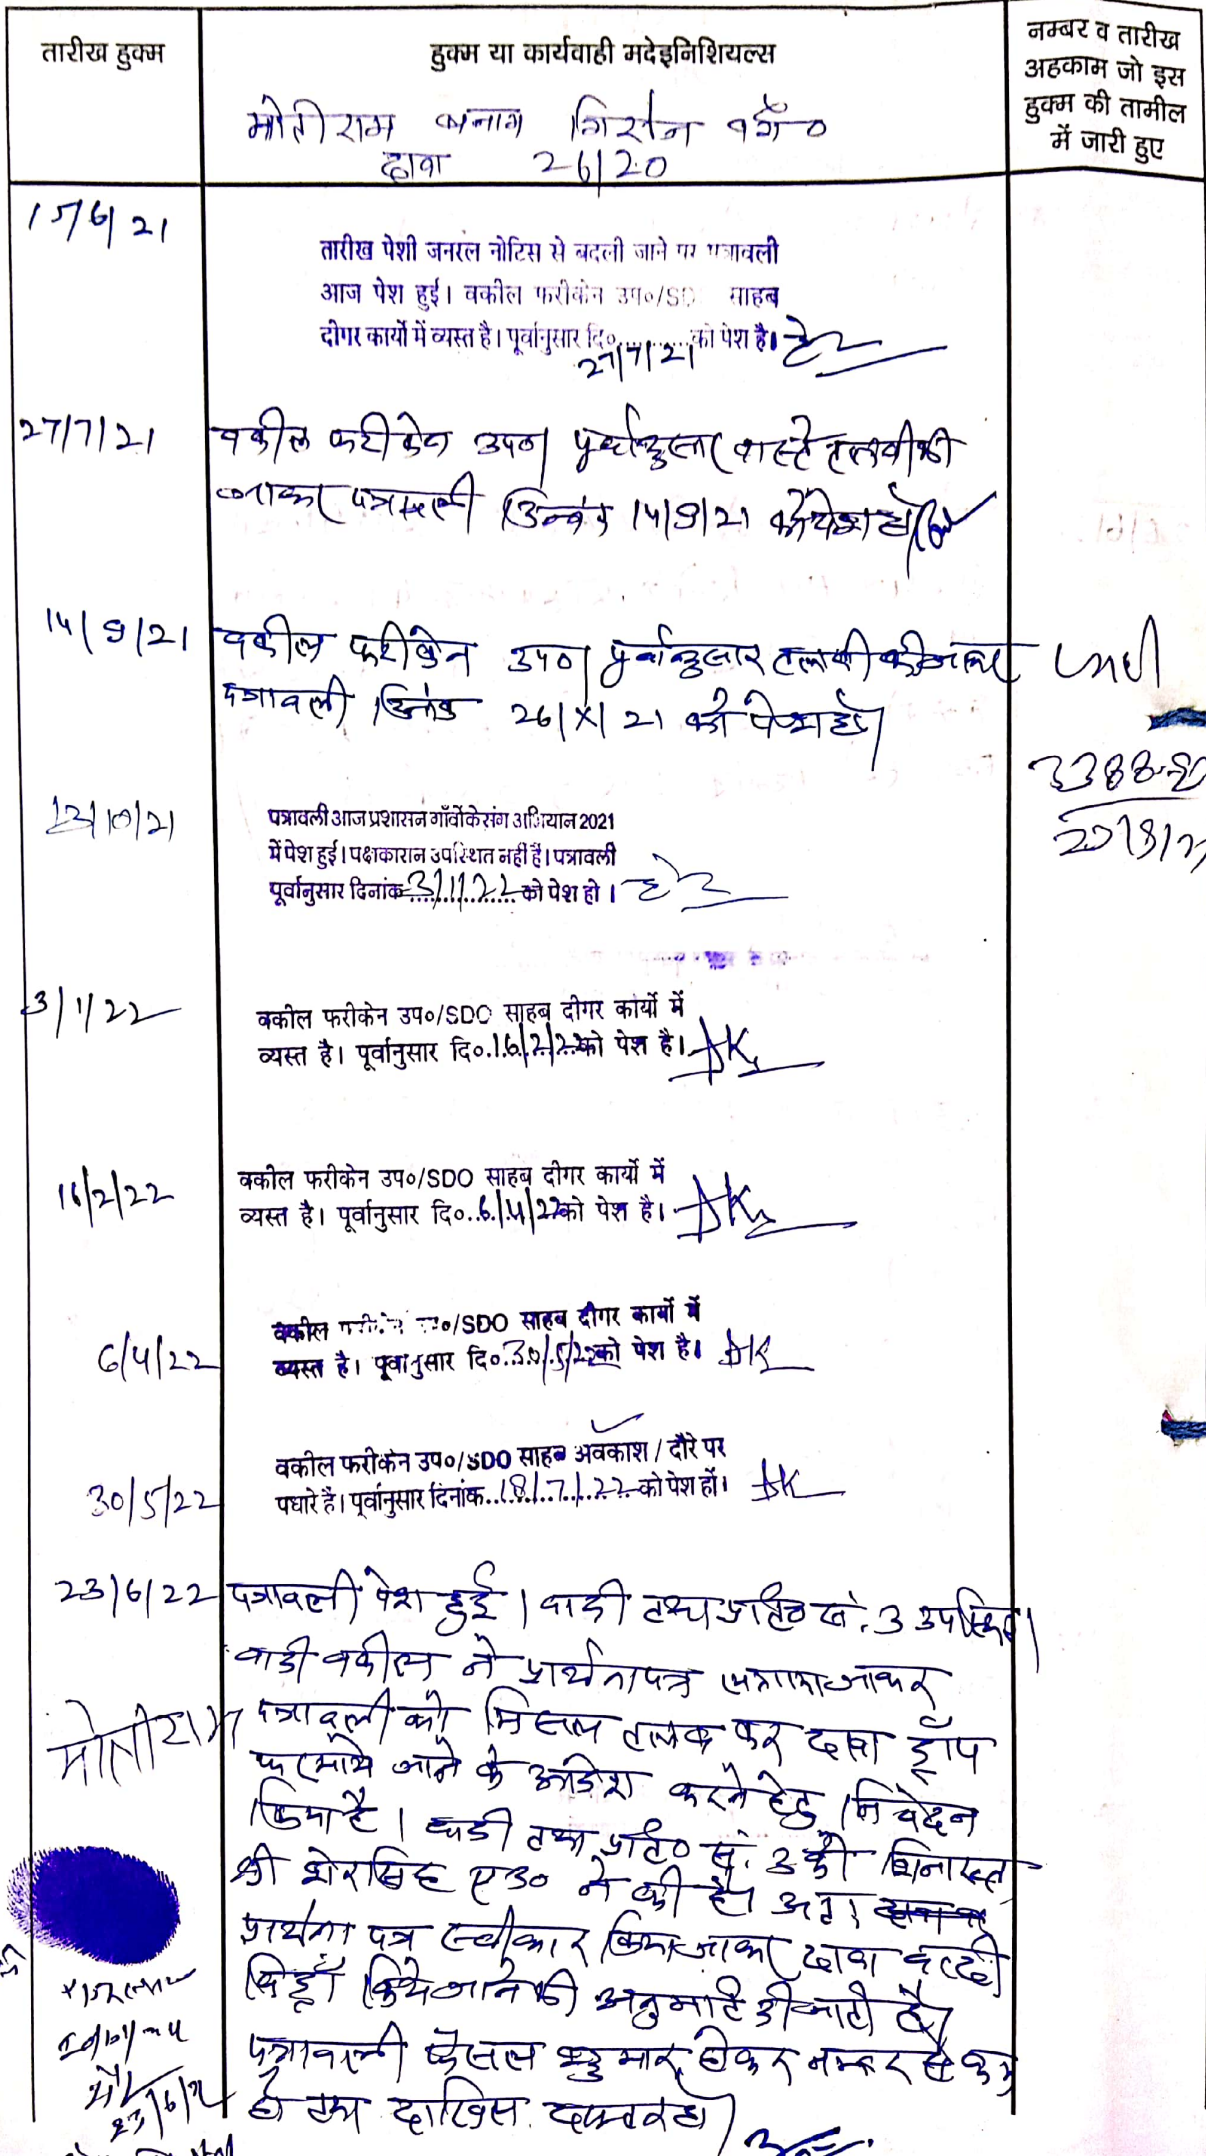 तारीख हुक्म
हुक्म या कार्यवाही मदेइनिशियल्स
नम्बर व तारीख
अहकाम जो इस
हुक्म की तामील
में जारी हुए
मोतीराम बनाम
दावा 26/20
15/6/21
तारीख पेशी जनरल नोटिस से बदली जाने पर पत्रावली
आज पेश हुई। वकील फरीकेन उप०/SD साहब
दीगर कार्यो में व्यस्त है। पूर्वानुसार दि०..........को पेश है।
27/7/21
27/7/21
वकील फरीकेन उप०। पूर्वानुसार वास्ते तलबी की
जाकर पत्रावली दिनांक 14/9/21 को पेश हो।
14/9/21
वकील फरीकेन उप०। पूर्वानुसार तलबी की जाकर
पत्रावली दिनांक 26/X/21 को पेश हो।
जारी
13/10/21
पत्रावली आज प्रशासन गॉंवोंके संग अभियान 2021
में पेश हुई। पक्षकारान उपस्थित नहीं है। पत्रावली
पूर्वानुसार दिनांक 3/1/22 को पेश हो।
3/1/22
वकील फरीकेन उप०/SDO साहब दीगर कार्यो में
व्यस्त है। पूर्वानुसार दि०.16/2/22को पेश है।
16/2/22
वकील फरीकेन उप०/SDO साहब दीगर कार्यो में
व्यस्त है। पूर्वानुसार दि०..6/4/22को पेश है।
6/4/22
वकील /SDO साहब दीगर कार्यो में
व्यस्त है। पूर्वानुसार दि०.30/5/22को पेश है।
30/5/22
वकील फरीकेन उप०/SDO साहब अवकाश / दौरे पर
पधारे है। पूर्वानुसार दिनांक..18/7/22 को पेश हों।
23/6/22
पत्रावली पेश हुई। वादी तथा प्रति० सं. 3 उपस्थित।
वादी वकील ने प्रार्थना पत्र
मोतीराम
पत्रावली को मिसल तलब कर दावा ड्रॉप
फरमाये जाने के आदेश करने हेतु निवेदन
किया है। वादी तथा प्रति० सं. 3 की शिनाख्त
श्री शेरसिंह एड० ने की है। अतः
प्रार्थना पत्र स्वीकार किया जाकर दावा
विड्रॉ किये जाने की अनुमति दी जाती है।
पत्रावली फैसल शुमार होकर नम्बर से कम
हो तथा दाखिल दफ्तर हो।
23/6/22